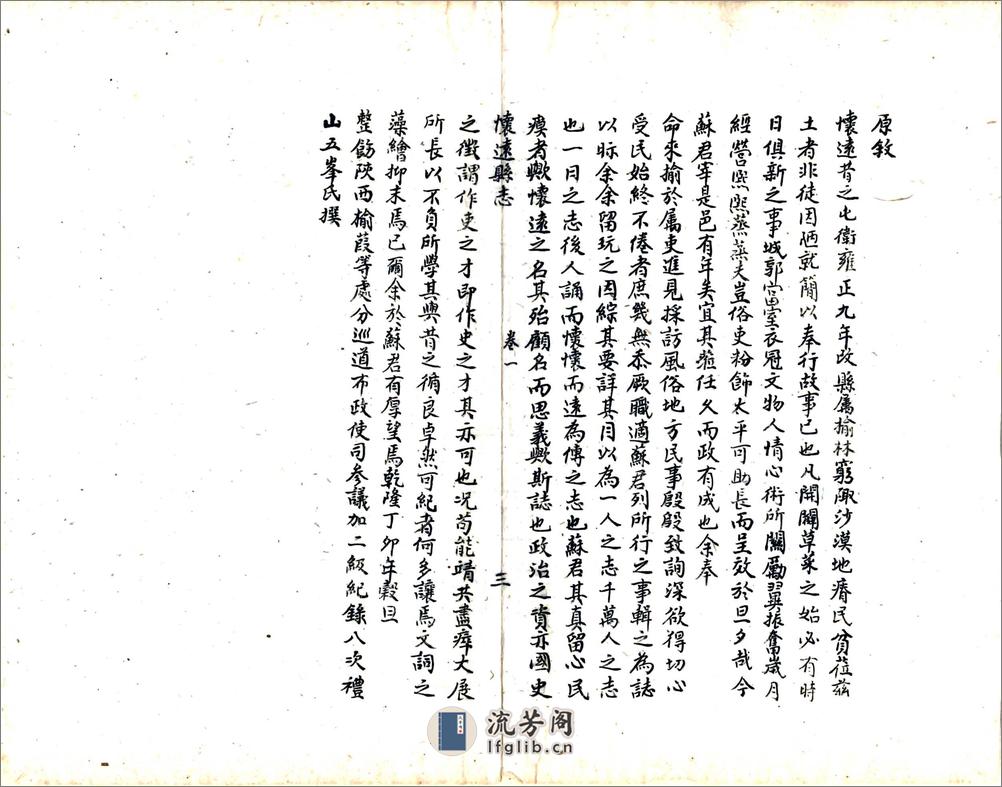 原敘
懷遠昔之屯衛雍正九年改縣屬榆林窮陬沙漠地瘠民貧蒞茲
土者非徒因陋就簡以奉行故事已也凡開闢草萊之始必有時
日俱新之事城郭宮室衣冠文物人情心術所關勵翼振奮歲月
經營熙熙蒸蒸夫豈俗吏粉飾太平可助長而呈效於旦夕哉今
蘇君宰是邑有年矣宜其蒞任久而政有成也余奉
命來榆於屬吏進見採訪風俗地方民事殷殷致詢深欲得切心
受民始終不倦者庶幾無忝厥職適蘇君列所行之事輯之為誌
以眎余余留玩之因綜其要詳其目以為一人之志千萬人之志
也一日之志後人誦而懷懷而遠為傳之志也蘇君其真留心民
瘼者歟懷遠之名其殆顧名而思義歟斯誌也政治之資亦國史
懷遠縣志
卷一
三
之徵謂作吏之才即作史之才其亦可也况苟能靖共盡瘁大展
所長以不負所學其與昔之循良卓然可紀者何多讓焉文詞之
藻繪抑末焉已爾余於蘇君有厚望焉乾隆丁卯年穀旦
整飭陝西榆葭等處分巡道布政使司參議加二級紀錄八次禮
山五峯氏撰
流芳阁
lfglib.cn